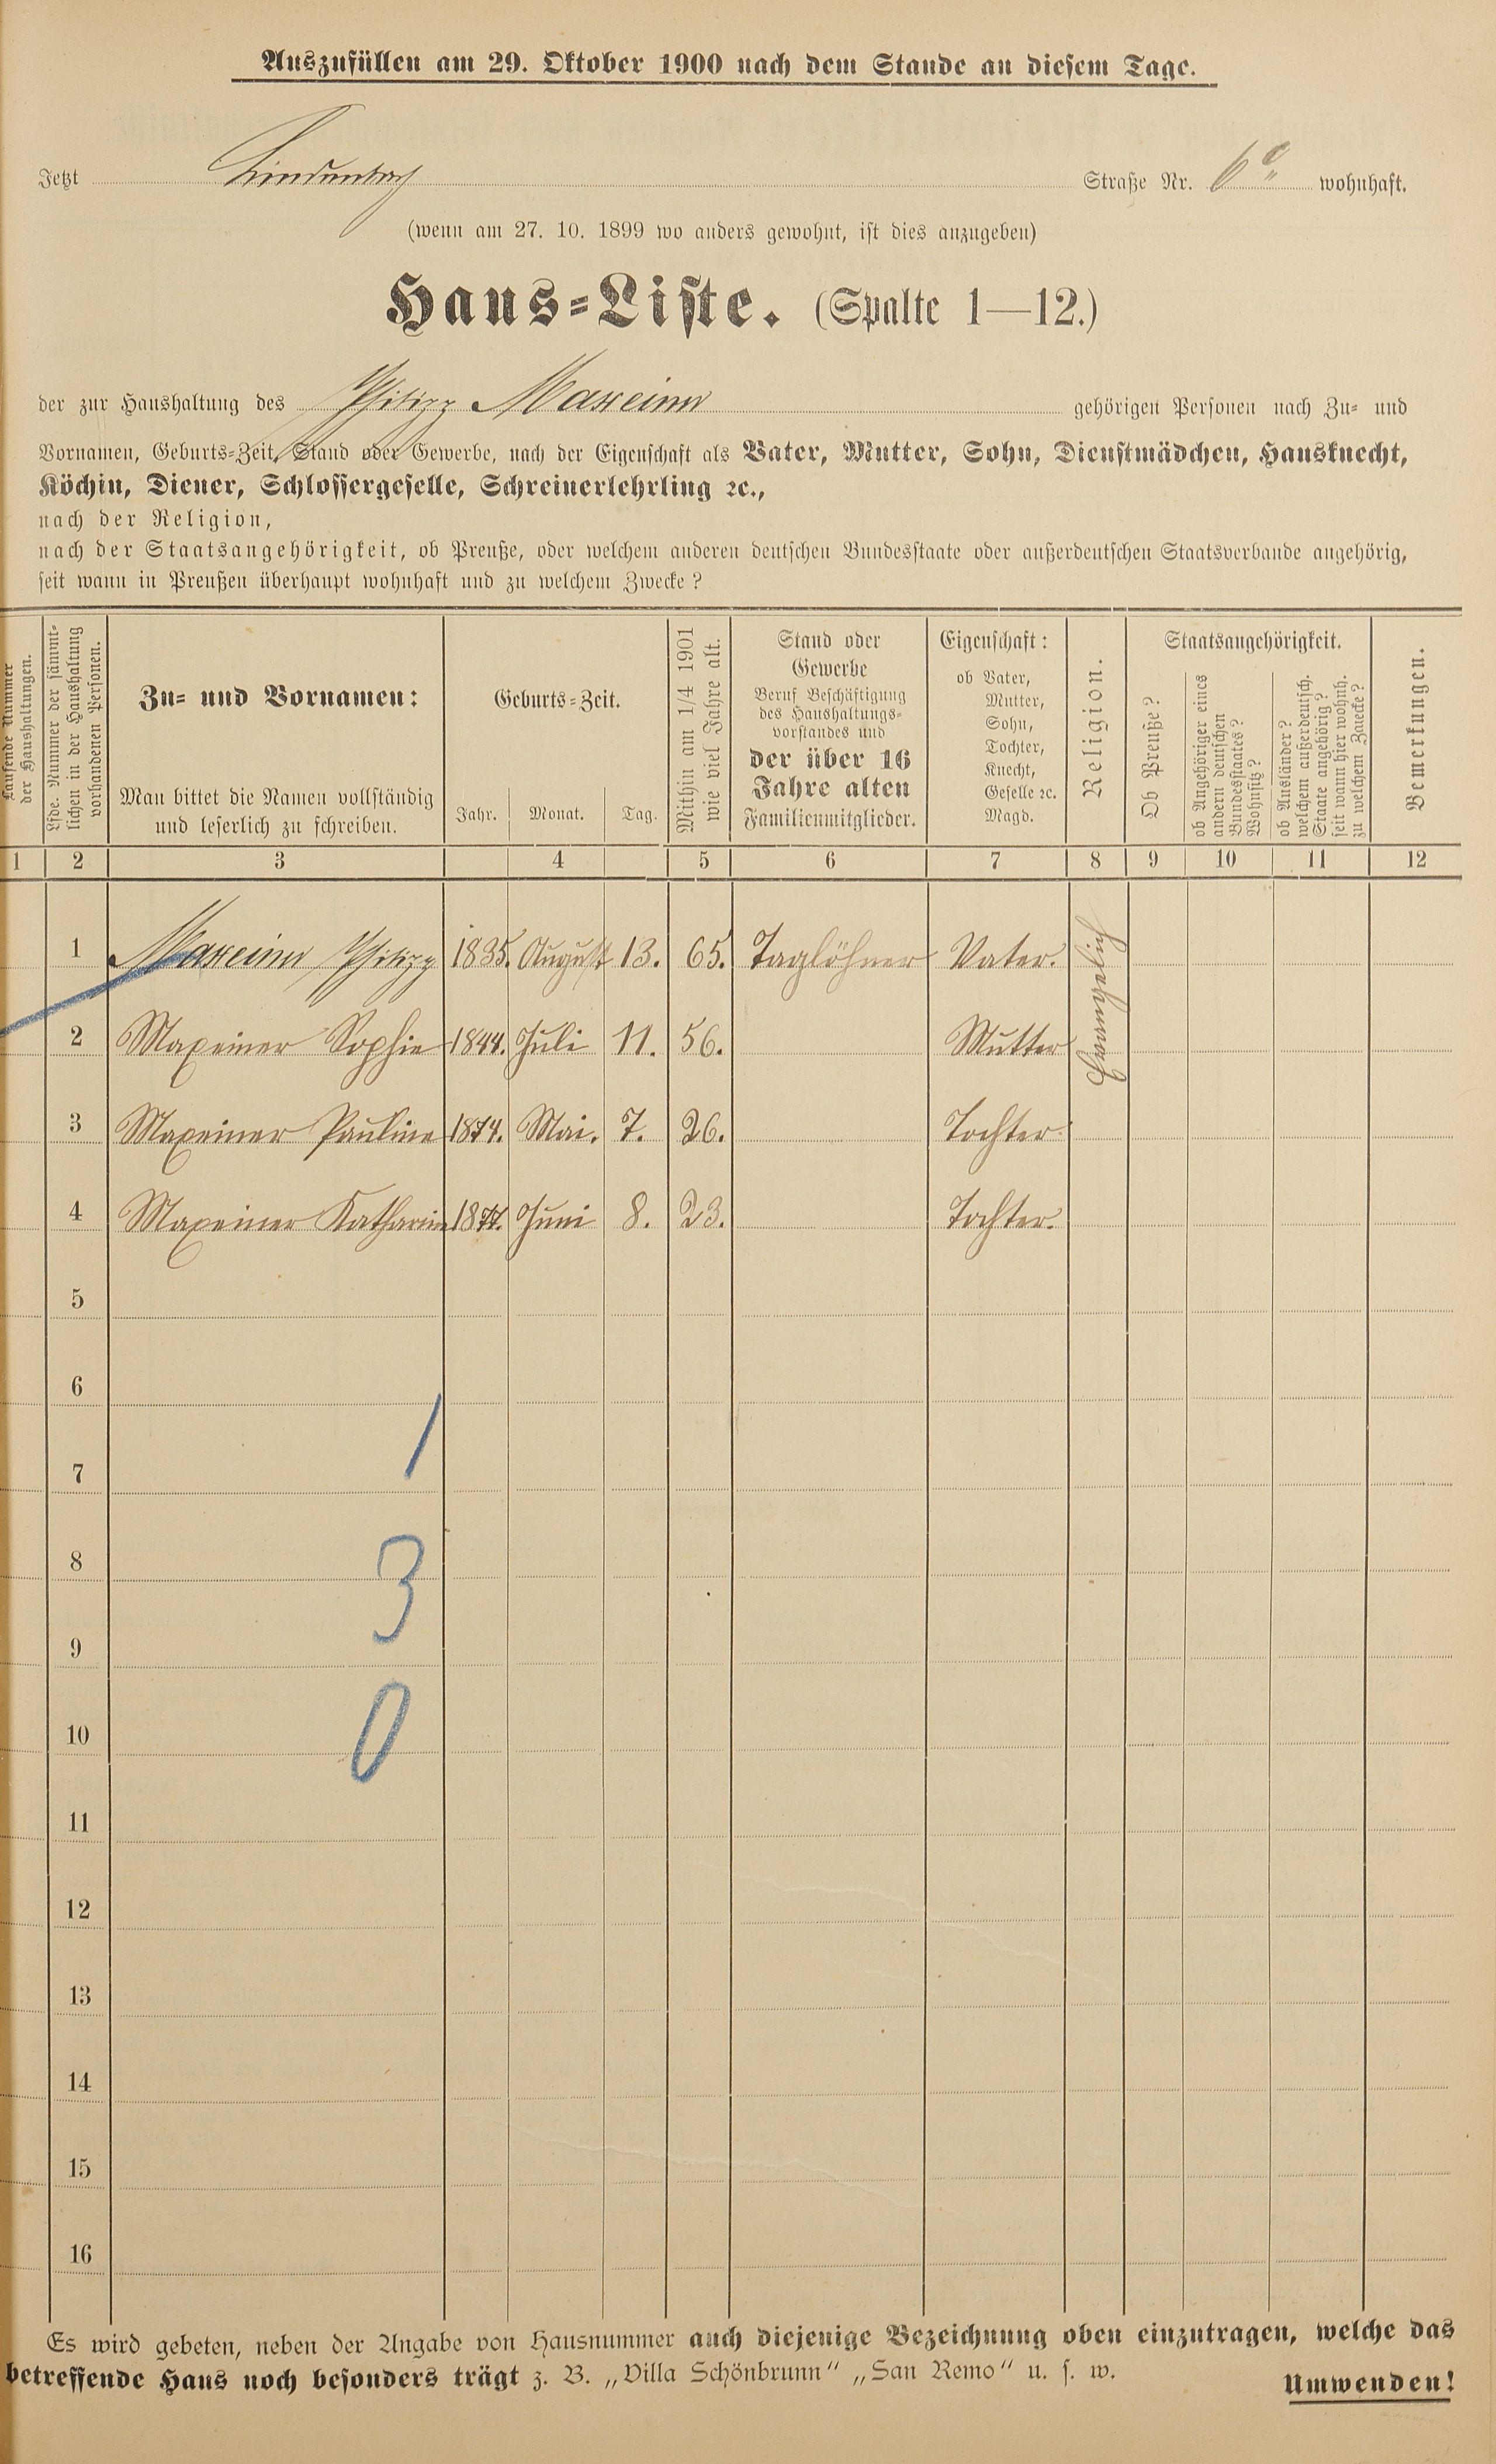 Auszufüllen am 29. Oktober 1900 nach dem Stande an diesem Tage.
Jetzt Lindenbach Straße Nr. 6a wohnhaft.
(wenn am 27. 10. 1899 wo anders gewohnt, ist dies anzugeben)
Haus-Liste. (Spalte 1—12.)
der zur Haushaltung des Philipp Maxeiner gehörigen Personen nach Zu- und
Vornamen, Geburts-Zeit, Stand oder Gewerbe, nach der Eigenschaft als Vater, Mutter, Sohn, Dienstmädchen, Hausknecht,
Köchin, Diener, Schlossergeselle, Schreinerlehrling ꝛc.,
nach der Religion,
nach der Staatsangehörigkeit, ob Preuße, oder welchem anderen deutschen Bundesstaate oder außerdeutschen Staatsverbande angehörig,
seit wann in Preußen überhaupt wohnhaft und zu welchem Zwecke?
Laufende Nummer
der Haushaltungen.
Lfde. Nummer der sämmt-
lichen in der Haushaltung
vorhandenen Personen.
Zu- und Vornamen:
Man bittet die Namen vollständig
und leserlich zu schreiben.
Geburts-Zeit.
Jahr. Monat. Tag.
Mithin am 1/4 1901
wie viel Jahre alt.
Stand oder
Gewerbe
Beruf Beschäftigung
des Haushaltungs-
vorstandes und
der über 16
Jahre alten
Familienmitglieder.
Eigenschaft:
ob Vater,
Mutter,
Sohn,
Tochter,
Knecht,
Geselle ꝛc.
Magd.
Religion.
Staatsangehörigkeit.
Ob Preuße?
ob Angehöriger eines
andern deutschen
Bundesstaates?
Wohnsitz?
ob Ausländer?
welchem außerdeutsch.
Staate angehörig?
seit wann hier wohnh.
zu welchem Zwecke?
Bemerkungen.
1 2 3 4 5 6 7 8 9 10 11 12
1 Maxeiner Philipp 1835. August 13. 65. Taglöhner Vater. Evangelich
2 Maxeiner Sophie 1844. Juli 11. 56. Mutter
3 Maxeiner Pauline 1874. Mai. 7. 26. Tochter.
4 Maxeiner Katharina 1877. Juni 8. 23. Tochter.
5
6
1
7
8
3
9
10
0
11
12
13
14
15
16
Es wird gebeten, neben der Angabe von Hausnummer auch diejenige Bezeichnung oben einzutragen, welche das
betreffende Haus noch besonders trägt z. B. „Villa Schönbrunn“ „San Remo“ u. s. w.
Umwenden!